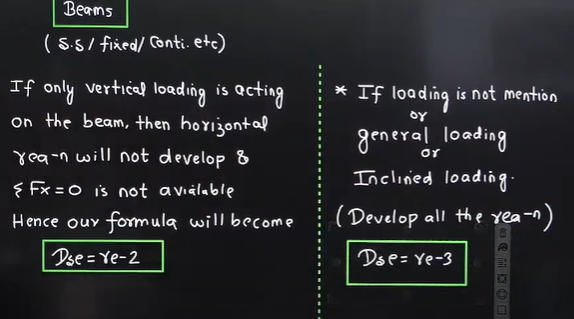 Beams
(S.S/fixed/Conti. etc)
If only vertical loading is acting
on the beam, then horizontal
rea-n will not develop &
ΣFx=0 is not avialable
Hence our formula will become
Dse=re-2
* If loading is not mention
or
general loading
or
Inclined loading.
(Develop all the rea-n)
Dse=re-3